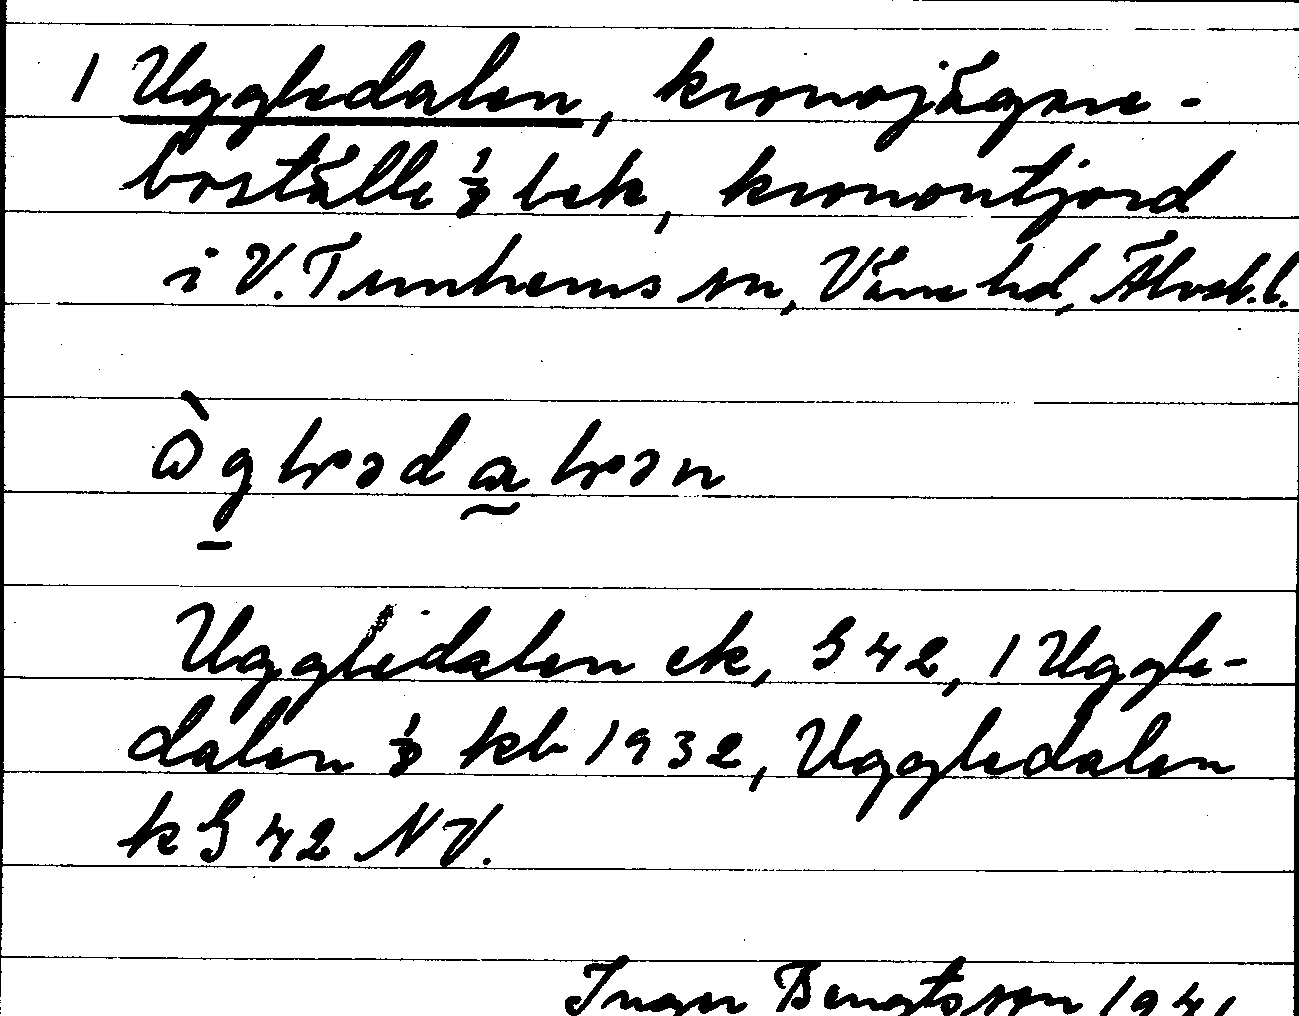 1 Uggledalen, kronojägare-
boställe 1/8 bek, kronontjord
i V. Tunhems sn, Väne hd, Älvsb.l.
Uggledalen ek, G 42, 1 Uggle-
dalen 1/8 kb 1932, Uggledalen
k G 42 NV.
Inger Bengtsson 1941